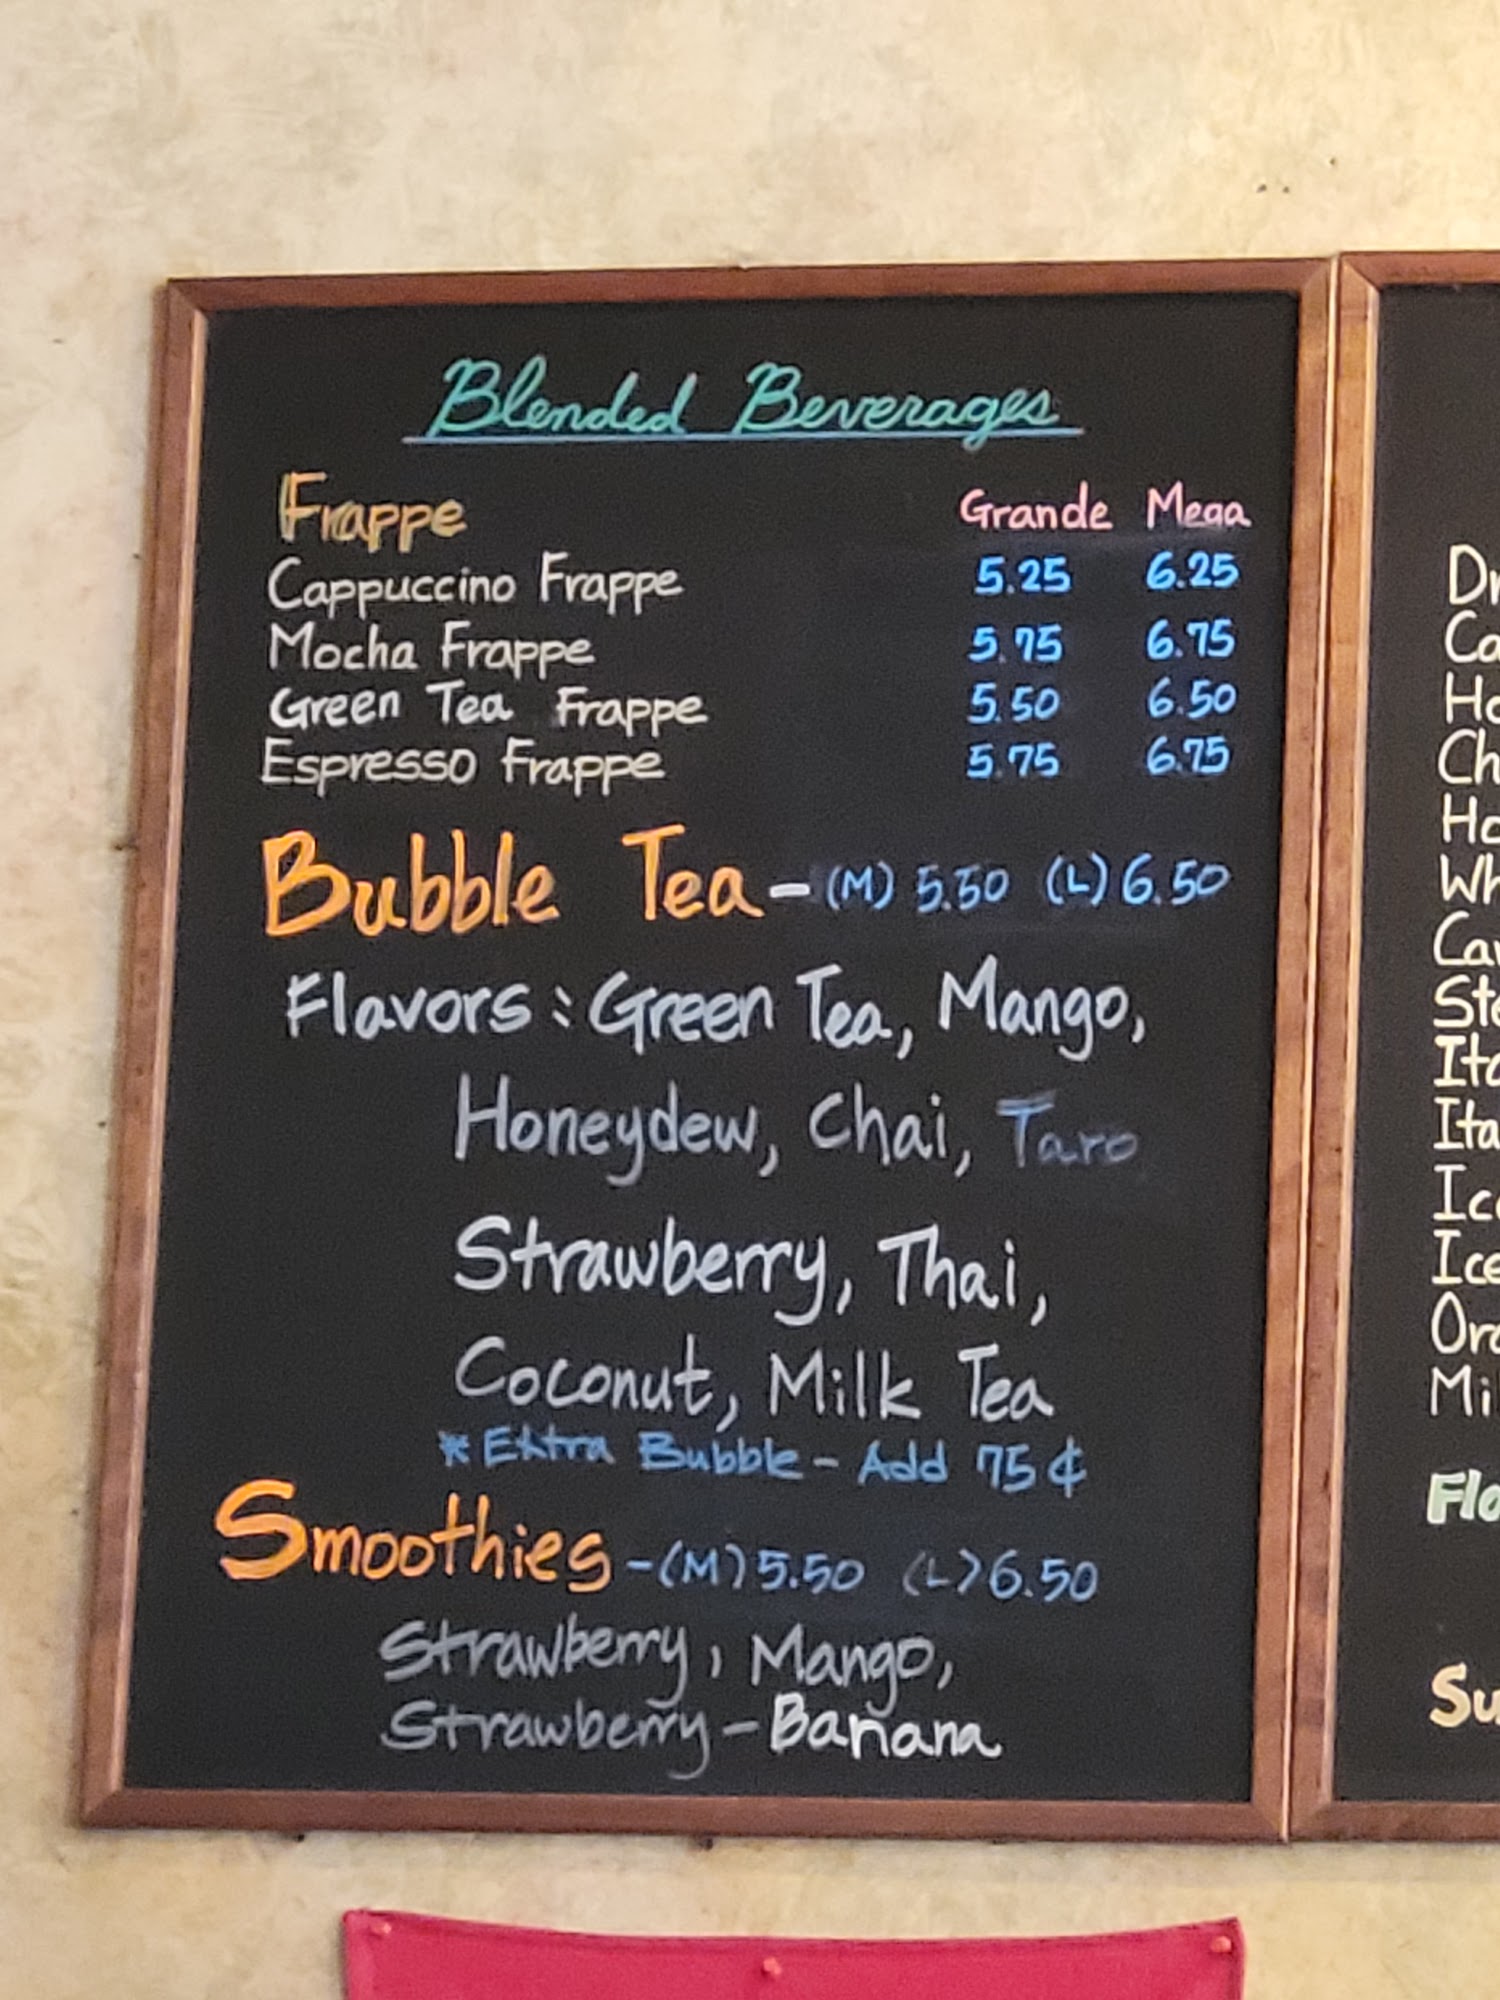 Blended Beverages
Frappe Grande Mega
Cappuccino Frappe 5.25 6.25
Mocha Frappe 5.75 6.75
Green Tea Frappe 5.50 6.50
Espresso Frappe 5.75 6.75
Bubble Tea - (M) 5.50 (L) 6.50
Flavors : Green Tea, Mango,
Honeydew, Chai, Taro
Strawberry, Thai,
Coconut, Milk Tea
* Extra Bubble - Add 75¢
Smoothies - (M) 5.50 (L) 6.50
Strawberry, Mango,
Strawberry - Banana